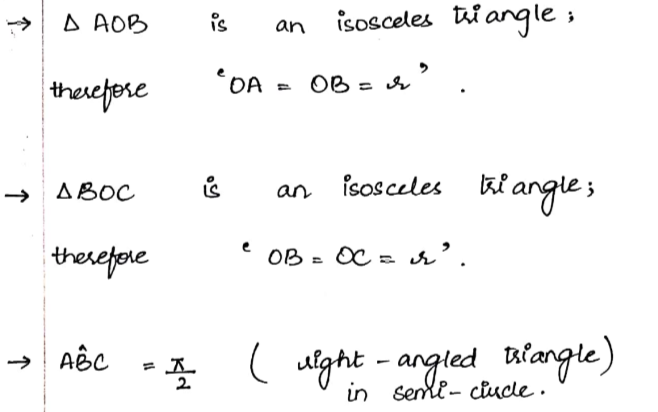 → Δ AOB is an isosceles triangle;
therefore 'OA = OB = r'.
→ Δ BOC is an isosceles triangle;
therefore 'OB = OC = r'.
→ AB̂C = π/2 ( right - angled triangle)
in semi-circle.